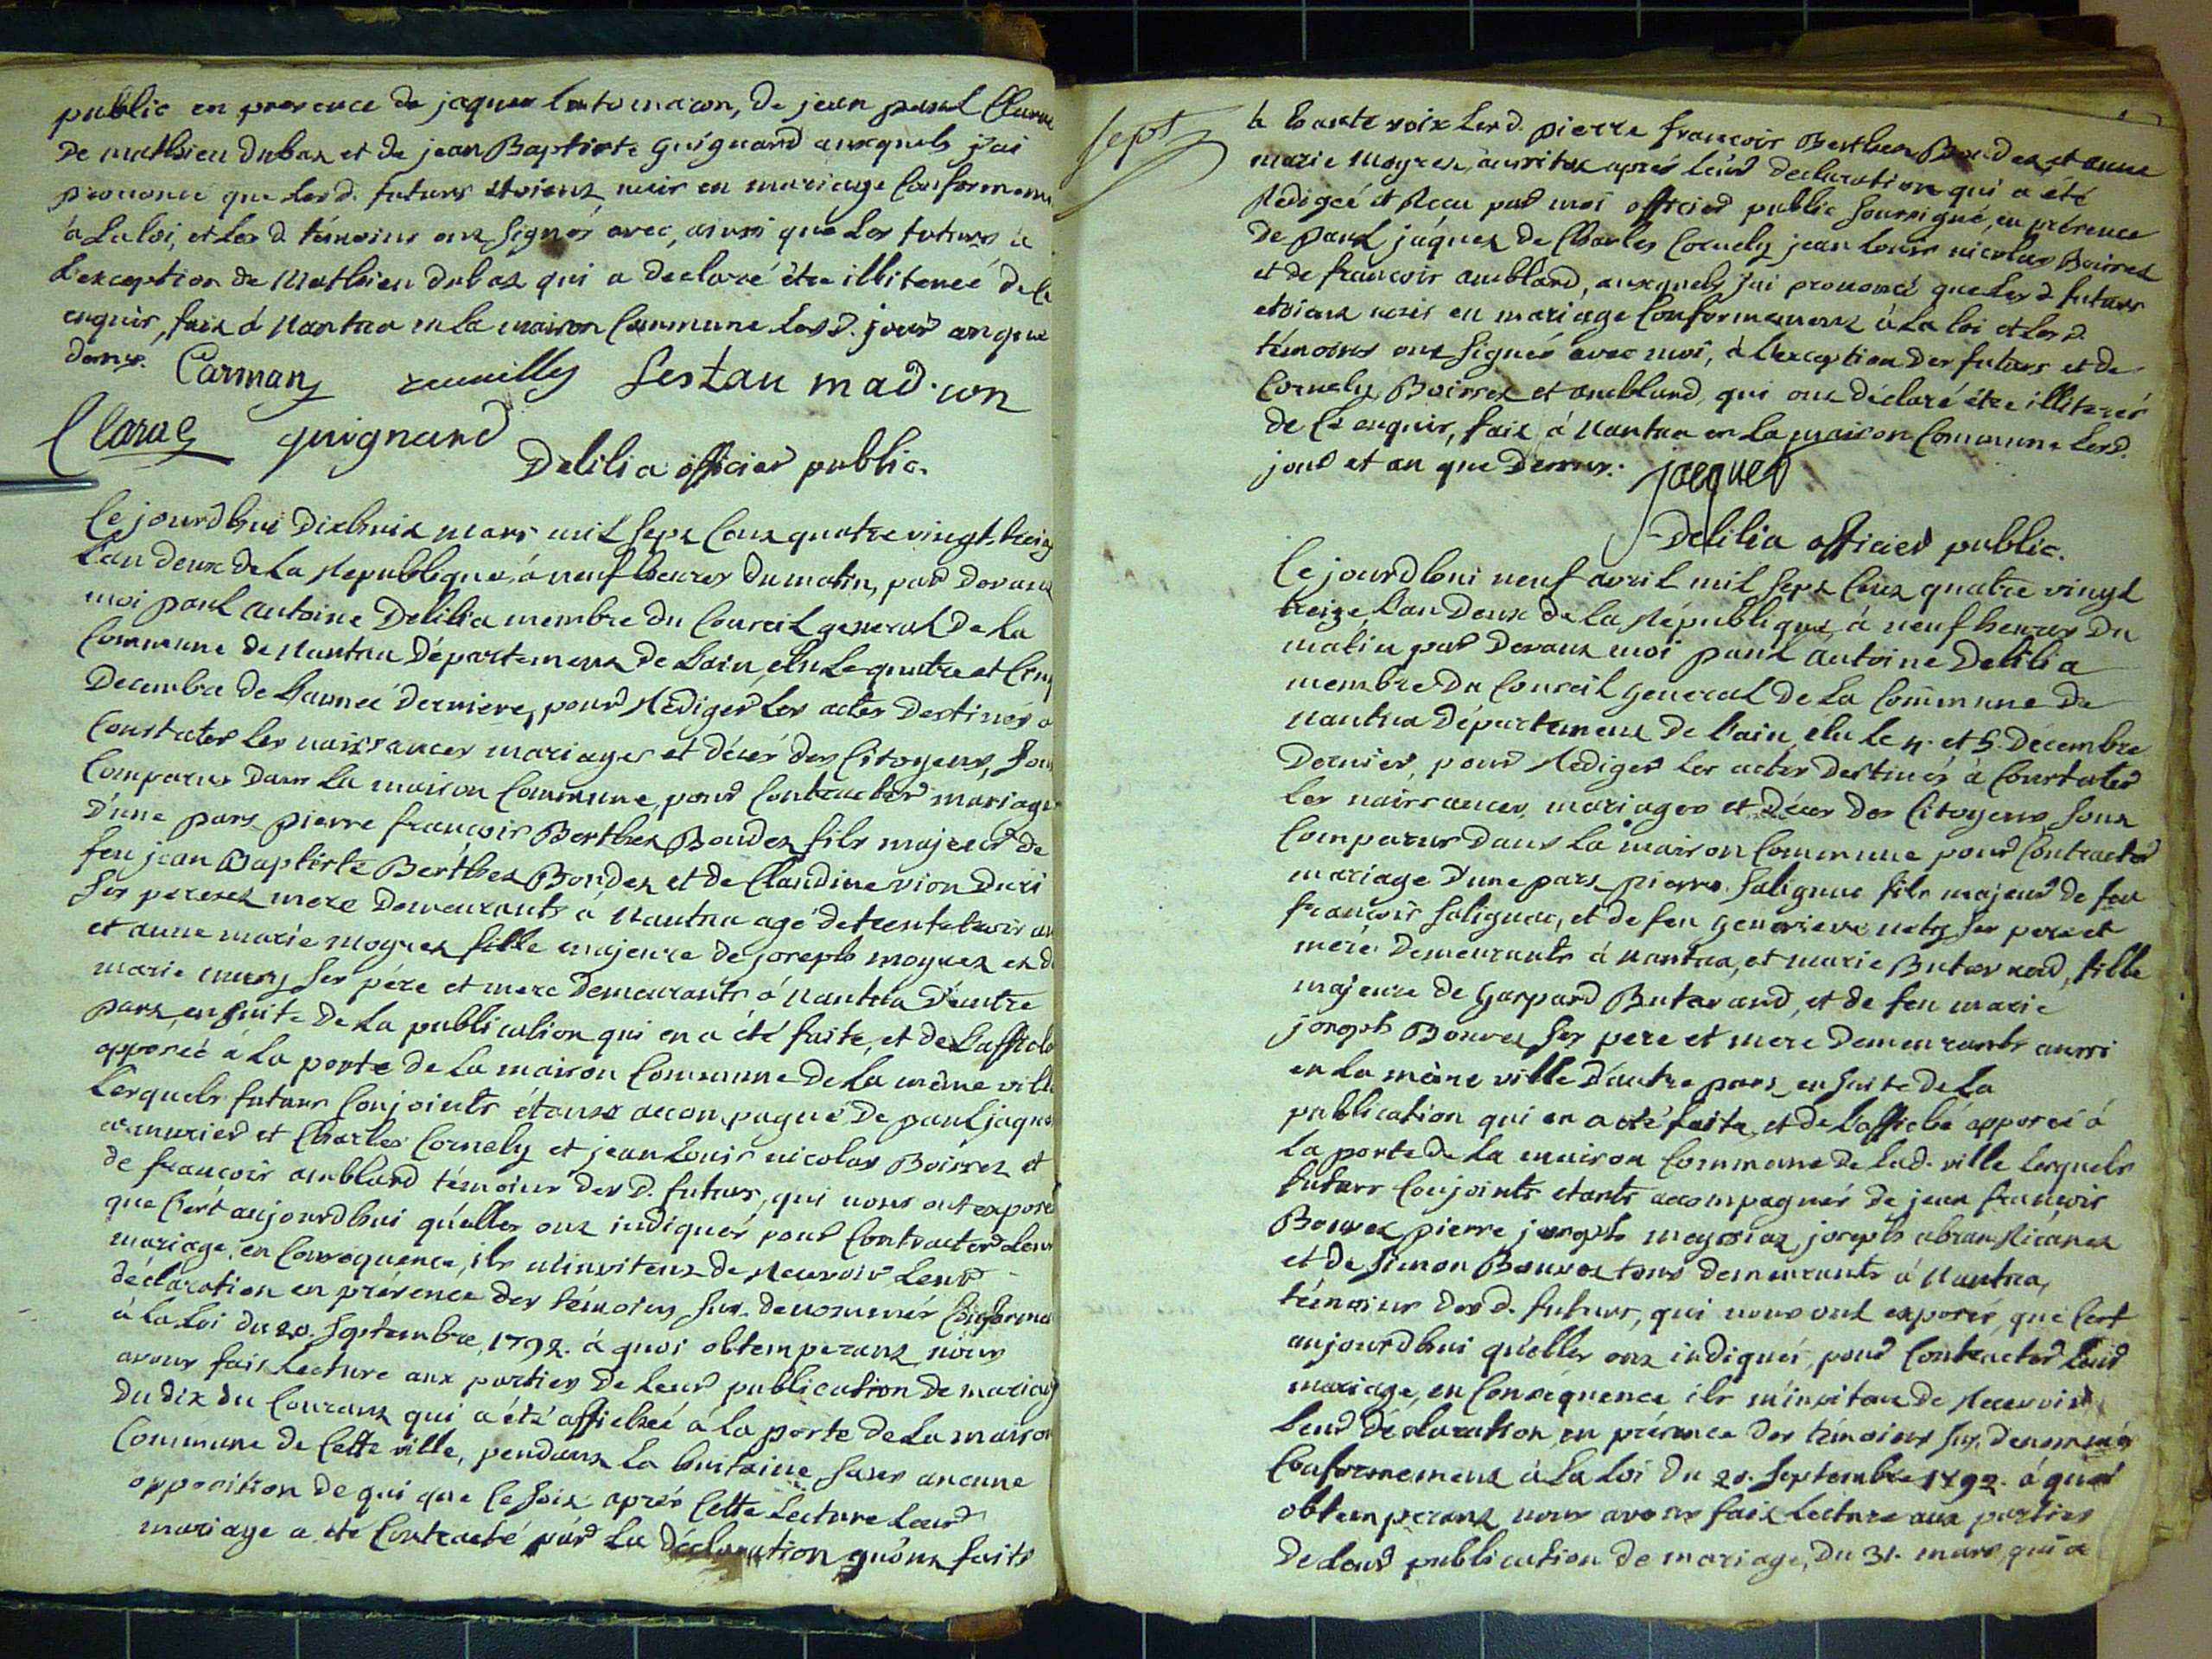 public en presence de jaques maçon, de jean paul Clarac
De mathieu dubas et de jean Baptiste Guignard auxquels j'ai
prononcé que lesd. futurs étoient unis en mariage Conformem
à La loi, et Les d. témoins ont signés avec, ainsi que Les futurs à
L'exception de Mathieu dubas qui a declaré être illiteré de ce
enquis, fait à Nantua en la maison Commune Lesd. jour an que
dessus. Carman
Clarac guignard
Delilia officier public.
Cejourd'hui dixhuit mars mil sept Cent quatre vingt treize
L'an deux de La Republique, à neuf heures du matin, par devant
moi paul antoine Delilia membre du Conseil general de La
Commune de Nantua Département de Lain, élu Le quatre et Cinq
Decembre de L'année derniere, pour Rédiger Les actes Destinés à
Constater Les naissances mariages et décés des Citoyens, sont
Comparus dans La maison Commune, pour Contracter mariage
D'une part pierre françois Berthet Bondet fils majeur de
feu jean Baptiste Berthet Bondet et de Claudine vion Duri
Ses pere et mere Demeurants à Nantua agé de trente trois an
et anne marie moyret fille majeure de joseph moyret et de
marie mury ses pére et mere demeurants à Nantua D'autre
part, en suite de La publication qui en a été faite, et de L'affiche
apposée à La porte de La maison Commune De La même ville
Lesquels futurs Conjoints étant accompagné De paul jaques
armurier et Charles Cornely et jean Louis nicolas Boisset et
de françois amblard témoins des d. futurs, qui nous ont exposé
que C'est aujourd'hui qu'elles ont indiqués pour Contracter Leur
mariage, en Consequence, ils m'invitent de Recevoir Leur
déclaration en présence des témoins sus. dénommés Conforme
à La Loi du 20. Septembre, 1792. à quoi obtemperant, nous
avons fait Lecture aux parties de Leur publication de mariage
Du dix du Courant qui a été affichée à La porte de La maison
Commune de Cette ville, pendant La huitaine sans aucune
opposition de qui que Ce soit après Cette Lecture Leur
mariage a été Contracté par La déclaration qu'ont faits
sept
à haute voix Lesd. pierre françois Berthet Bondet, et anne
marie moyret, aussitot après Leur declaration qui a été
Rédigée et Recu par moi officier public soussigné, en présence
De paul jáques de Charles Cornely jean Louis nicolas Boisset
et de françois amblard, auxquels j'ai prononcé que Les d. futurs
etoient unis en mariage Conformement à La loi et Les d.
témoins ont signés avec moi, à L'exception des futurs et de
Cornely, Boisset et amblard, qui ont déclaré être illiterés
de Ce enquis, fait à Nantua en La maison Commune Lesd.
jour et an que Dessus. jacques
Delilia officier public.
Cejourd'hui neuf avril mil sept Cent quatre vingt
treize, L'an Deux de La République, à neuf heures Du
matin par Devant moi paul antoine Delilia
membre Du Conseil General De La Commune De
Nantua Département De L'ain, élu Le 4. et 5. Décembre
Dernier, pour Rédiger Les actes Destinés à Constater
Les naissances, mariages et Décés des Citoyens sont
Comparus Dans La maison Commune pour Contracter
mariage D'une part pierre Salignac fils majeur de feu
françois Salignac, et de feu Genevieve ses pere et
mére Demeurants à Nantua, et marie Butavand, fille
majeure de Gaspard Butavand, et de feu marie
joseph Bouvet ses pere et mere Demeurants aussi
en La même ville D'autre part, en suite De La
publication qui en a été faite, et de L'affiche apposée à
La porte De La maison Commune De Lad. ville Lesquels
futurs Conjoints étants accompagnés De jean françois
Bouvet pierre joseph meyssiat, joseph
et de Simon Bouvet tous demeurants à Nantua,
témoins des d. futurs, qui nous ont exposés, que C'est
aujourd'hui qu'elles ont indiqués pour Contracter Leur
mariage, en Conséquence ils m'invitent de Recevoir
Leur Déclaration en présence des témoins sus. denommés
Conformement à La Loi Du 20. septembre 1792. à quoi
obtemperant, nous avons fait Lecture aux parties
de Leur publication de mariage, Du 31. mars, qui a